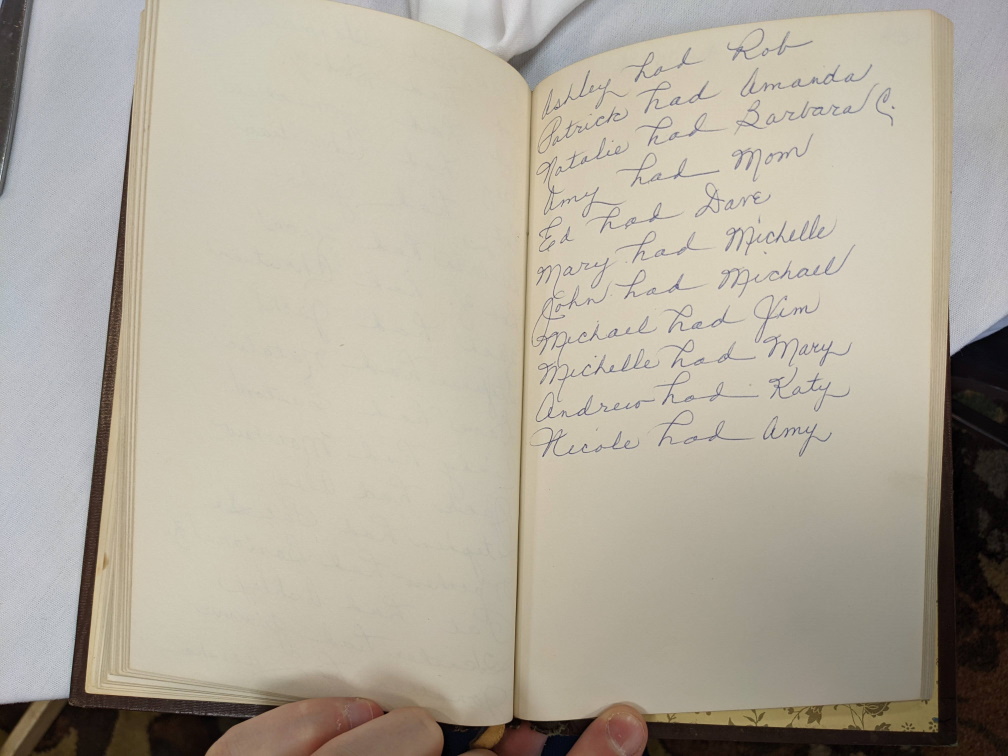 Ashley had Rob
Patrick had Amanda
Natalie had Barbara C.
Amy had Mom
Ed had Dave
Mary had Michelle
John had Michael
Michael had Jim
Michelle had Mary
Andrew had Katy
Nicole had Amy